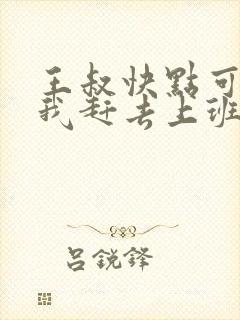 王叔快點可
我赶去上班
吕銳鋒